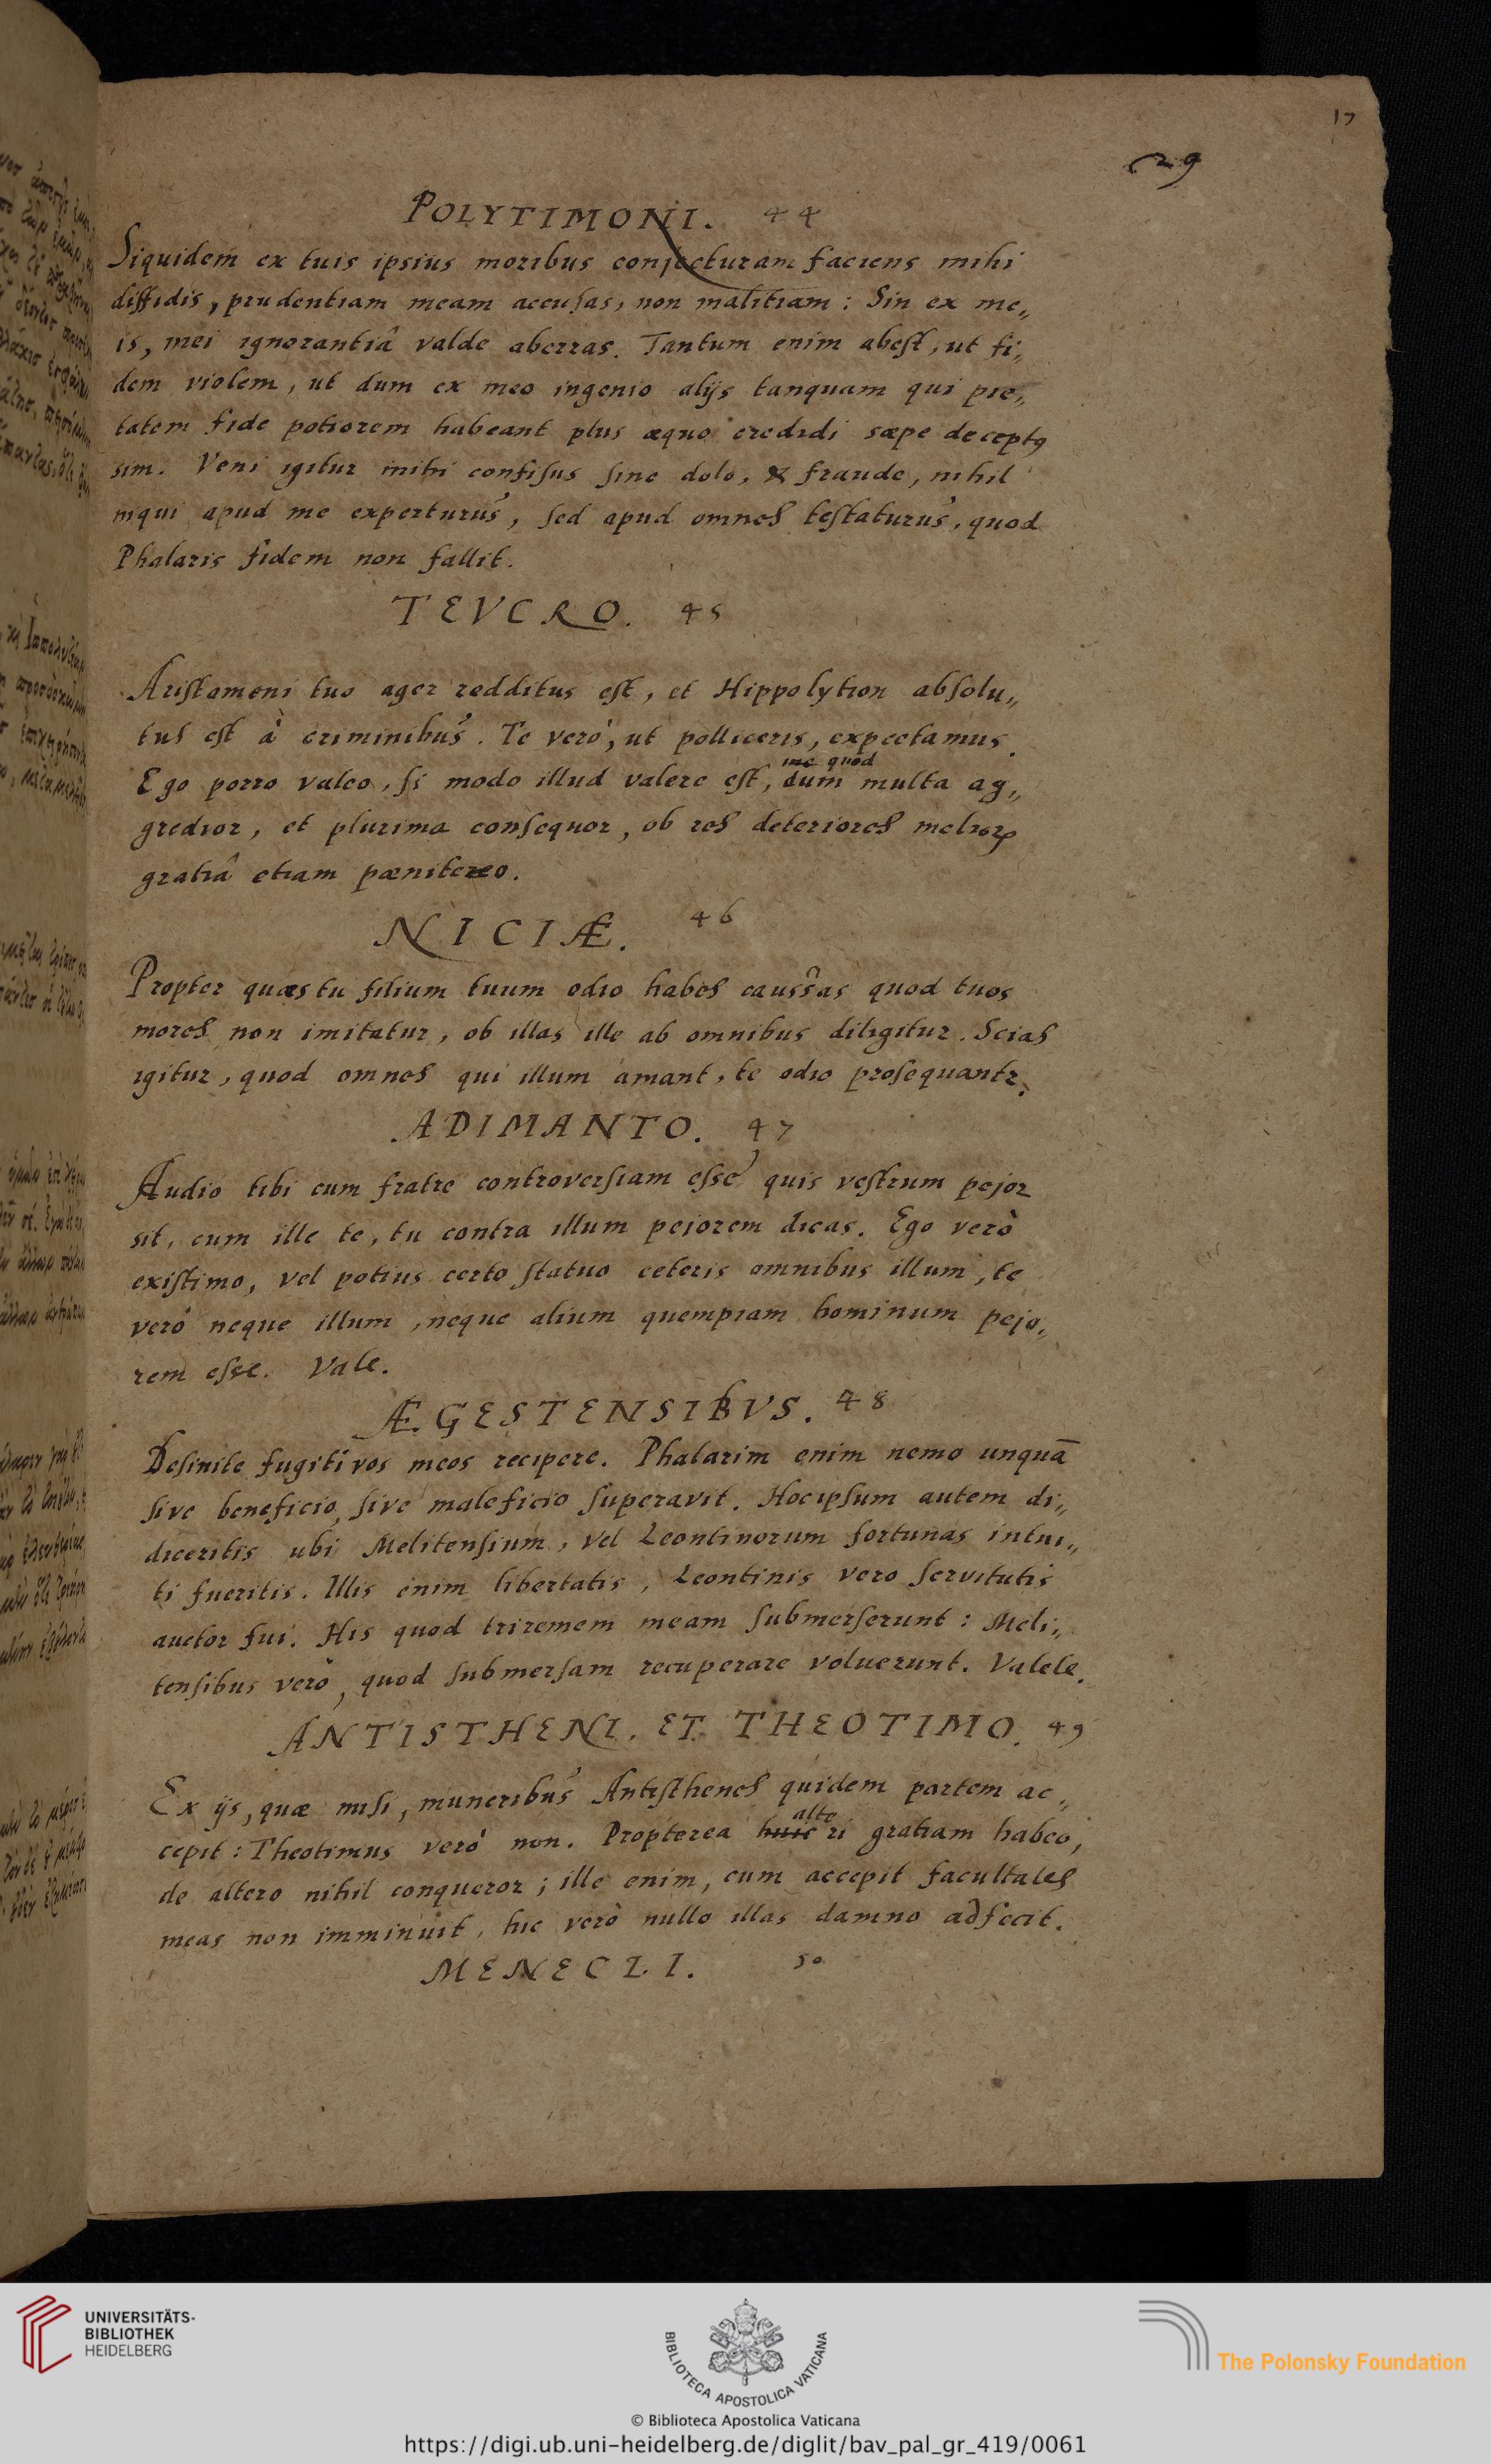 17
29
POLYTIMONI. 44
Siquidem ex tuis ipsius moribus conjecturam faciens mihi
diffidis, prudentiam meam accusas, non malitiam: Sin ex me„
is, mei ignorantiâ valde aberras. Tantum enim abest, ut fi„
dem violem, ut dum ex meo ingenio alijs tanquam qui pie„
tatem fide potiorem habeant plus æquo credidi sæpe deceptꝰ
sim. Veni igitur mihi confisus sine dolo, & fraude, nihil
inqui apud me experturus, sed apud omnes testaturus, quod
Phalaris fidem non fallit.
TEVCRO. 45
Aristomeni tuo ager redditus est, et Hippolytion absolu„
tus est à criminibus. Te verò, ut polliceris, expectamus.
me quod
Ego porro valeo, si modo illud valere est, dum multa ag„
gredior, et plurima consequor, ob res deteriores melioꝝ
gratiâ etiam pœnitereo.
NICIÆ. 46
Propter quas tu filium tuum odio habes caussas quod tuos
mores non imitatur, ob illas ille ab omnibus diligitur. Scias
igitur, quod omnes qui illum amant, te odio prosequantr.
ADIMANTO. 47
Audio tibi cum fratre controversiam esse quis vestrum pejor
sit, cum ille te, tu contra illum pejorem dicas. Ego verò
existimo, vel potius certo statuo ceteris omnibus illum, te
verò neque illum, neque alium quempiam hominum pejo„
rem esse. Vale.
ÆGESTENSIBVS. 48
Desinite fugitivos meos recipere. Phalarim enim nemo unquā
sive beneficio, sive maleficio superavit. Hoc ipsum autem di„
diceritis ubi Melitensium, vel Leontinorum fortunas intui„
ti fueritis. Illis enim libertatis, Leontinis vero servitutis
auctor fui. His quod triremem meam submerserunt: Meli„
tensibus verò, quod submersam recuperare voluerunt. Valete.
ANTISTHENI. ET. THEOTIMO. 49
Ex ijs, quæ misi, muneribus Antisthenes quidem partem ac„
alte
cepit: Theotimus verò non. Propterea huic ri gratiam habeo,
de altero nihil conqueror; ille enim, cum accepit facultates
meas non imminuit, hic verò nullo illas damno adfecit.
MENECLI. 50
UNIVERSITÄTS-
BIBLIOTHEK
HEIDELBERG
BIBLIOTECA APOSTOLICA VATICANA
The Polonsky Foundation
© Biblioteca Apostolica Vaticana
https://digi.ub.uni-heidelberg.de/diglit/bav_pal_gr_419/0061